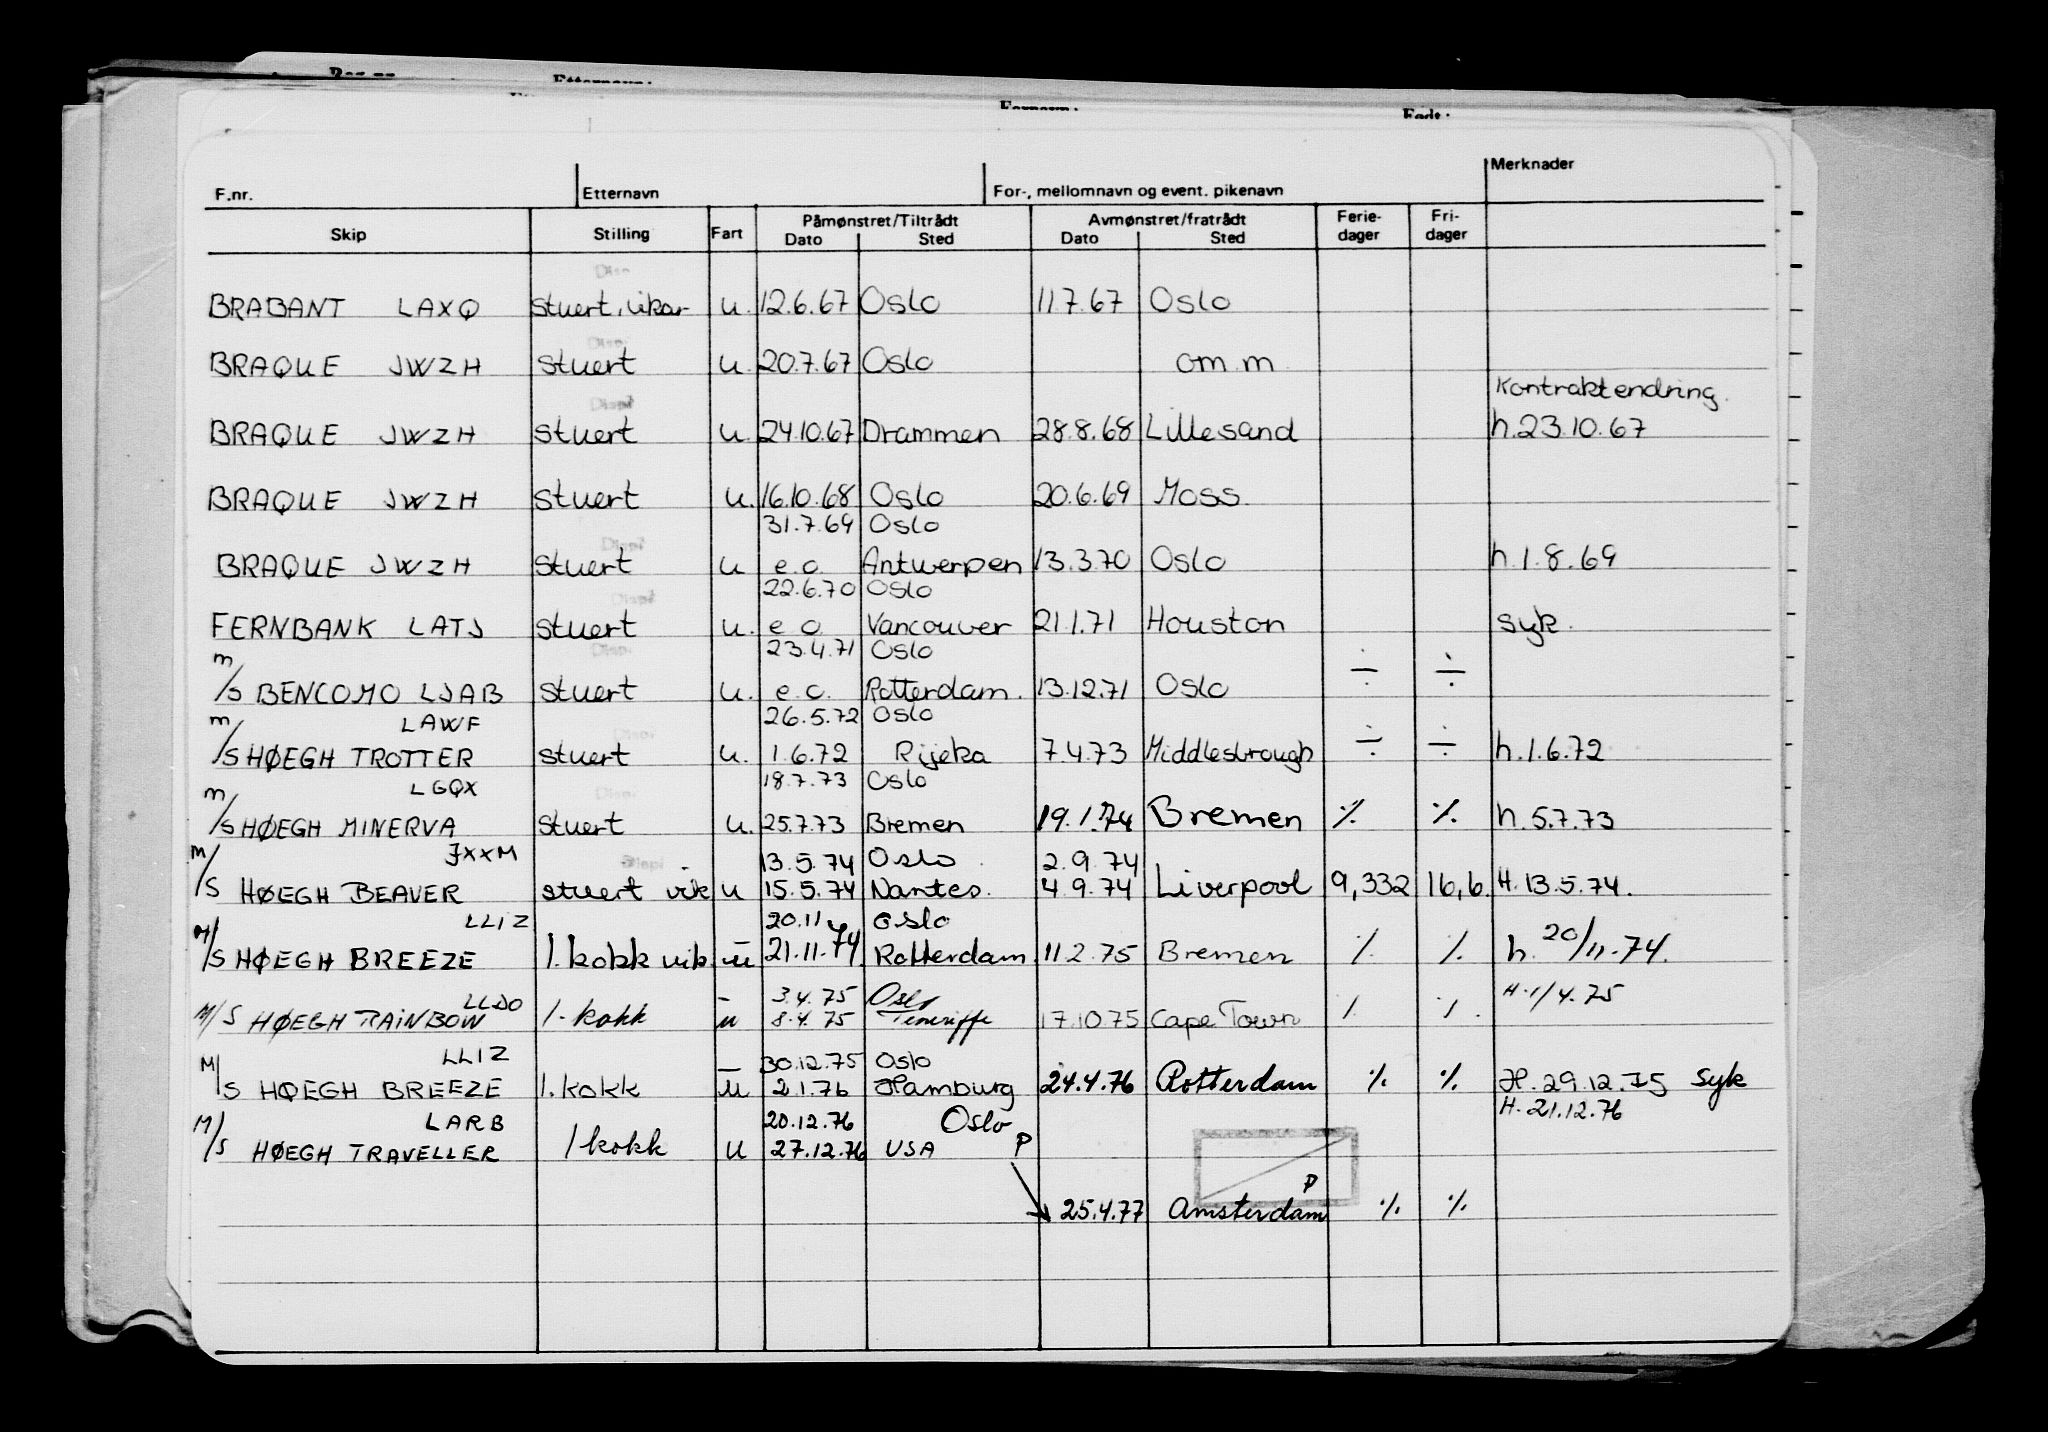 Merknader
F.nr. Etternavn For-, mellomnavn og event. pikenavn
Skip Stilling Fart Påmønstret/Tiltrådt Dato Sted Avmønstret/fratrådt Dato Sted Ferie-dager Fri-dager
BRABANT LAXQ stuert, vikar u. 12.6.67 Oslo 11.7.67 Oslo
BRAQUE JWZH stuert u. 20.7.67 Oslo om.m
Kontraktendring.
BRAQUE JWZH stuert u. 24.10.67 Drammen 28.8.68 Lillesand h.23.10.67
BRAQUE JWZH stuert u. 16.10.68 Oslo 20.6.69 Moss.
31.7.69 Oslo
BRAQUE JWZH stuert u e.o. Antwerpen 13.3.70 Oslo h.1.8.69
22.6.70 Oslo
FERNBANK LATJ stuert u. e.o. Vancouver 21.1.71 Houston syk.
23.4.71 Oslo
m/s BENCOMO LJAB stuert u. e.o. Rotterdam. 13.12.71 Oslo ÷ ÷
LAWF 26.5.72 Oslo
m/s HØEGH TROTTER stuert u. 1.6.72 Rijeka 7.4.73 Middlesbrough ÷ ÷ h.1.6.72
LGQX 18.7.73 Oslo
m/s HØEGH MINERVA stuert u. 25.7.73 Bremen 19.1.74 Bremen ٪ ٪ h.5.7.73
JXXM 13.5.74 Oslo 2.9.74
M/S HØEGH BEAVER stuert vik u 15.5.74 Nantes. 4.9.74 Liverpool 9,332 16,6 H.13.5.74.
LLIZ 20.11 Oslo
M/S HØEGH BREEZE 1. kokk vik u 21.11.74 Rotterdam 11.2.75 Bremen ٪ ٪ h. 20/11.74.
LLDO 3.4.75 Oslo H.1/4.75
M/S HØEGH RAINBOW 1. kokk u 8.4.75 Teneriffe 17.10.75 Cape Town ٪ ٪
LLIZ 30.12.75 Oslo
M/S HØEGH BREEZE 1. kokk u 2.1.76 Hamburg 24.4.76 Rotterdam ٪ ٪ H.29.12.75 syk
LARB 20.12.76 Oslo H.21.12.76
M/S HØEGH TRAVELLER 1 kokk u 27.12.76 USA P
P
25.4.77 Amsterdam ٪ ٪